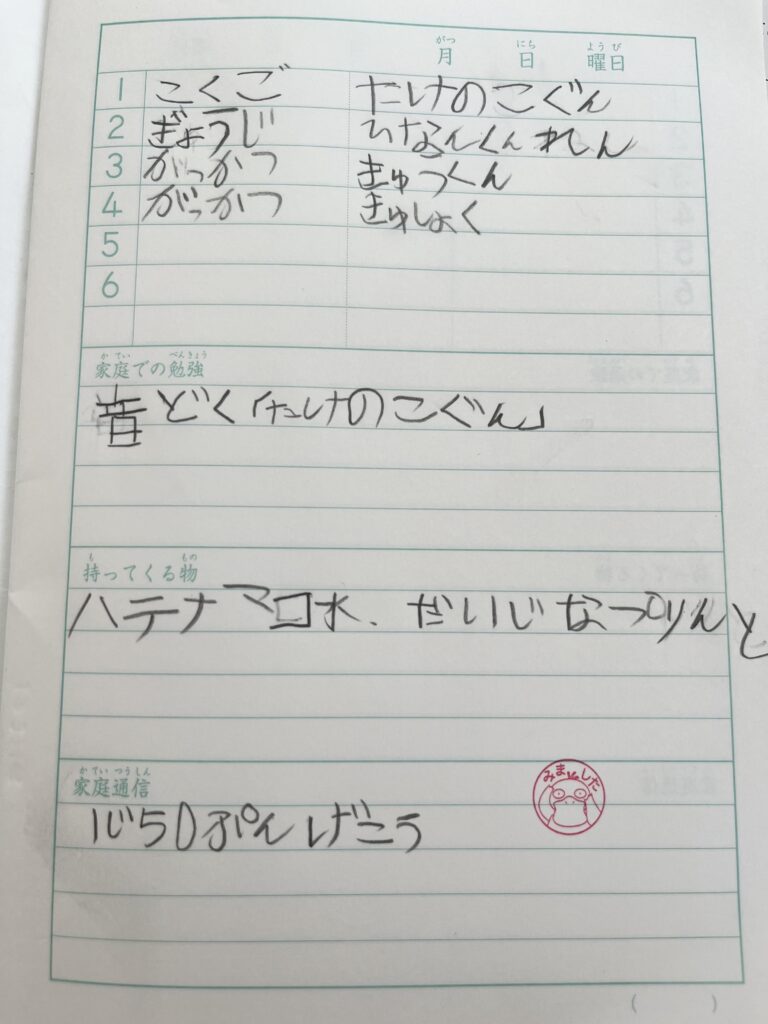 月 日 曜日
がつ にち ようび
1 こくご たけのこぐん
2 ぎょうじ ひなんくんれん
3 がっかつ きゅうくん
4 がっかつ きゅしょく
5
6
かてい べんきょう
家庭での勉強
音どく「たけのこぐん」
も もの
持ってくる物
ハテナマロ水、だいじなっぷりんと
かていつうしん
家庭通信
みました
1じ50ぷんげこう
( )